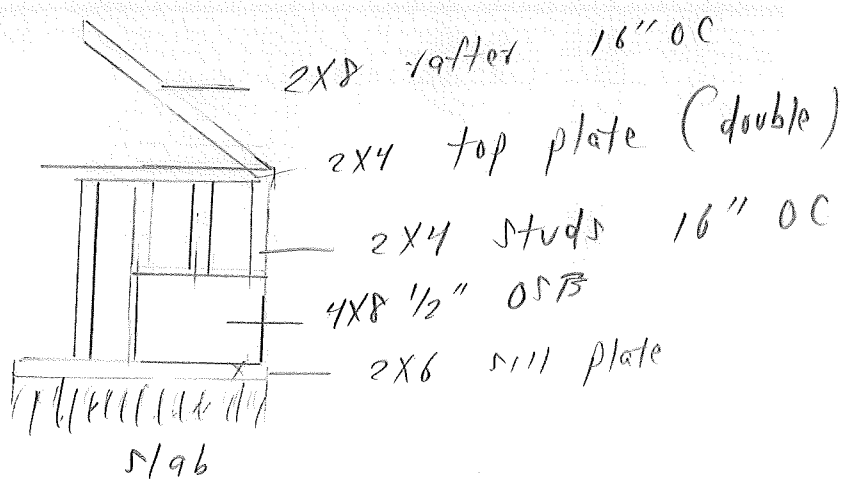 2X8 rafter 16" OC
2X4 top plate (double)
2X4 studs 16" OC
4X8 1/2" OSB
2X6 sill plate
slab